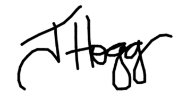 J Hogg